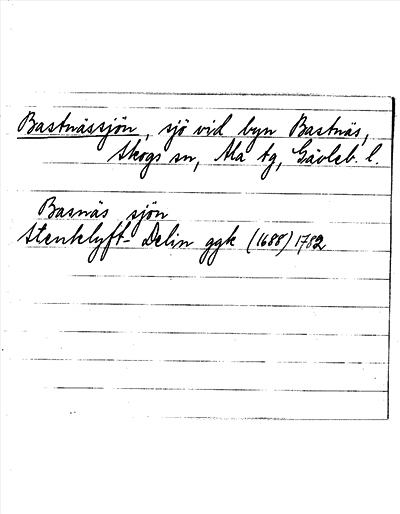 Bastnässjön, sjö vid byn Bastnäs,
Skogs sn, Ala tg, Gävleb. l.
Basnäs sjön
Stenklyft- Delin ggk (1688) 1782